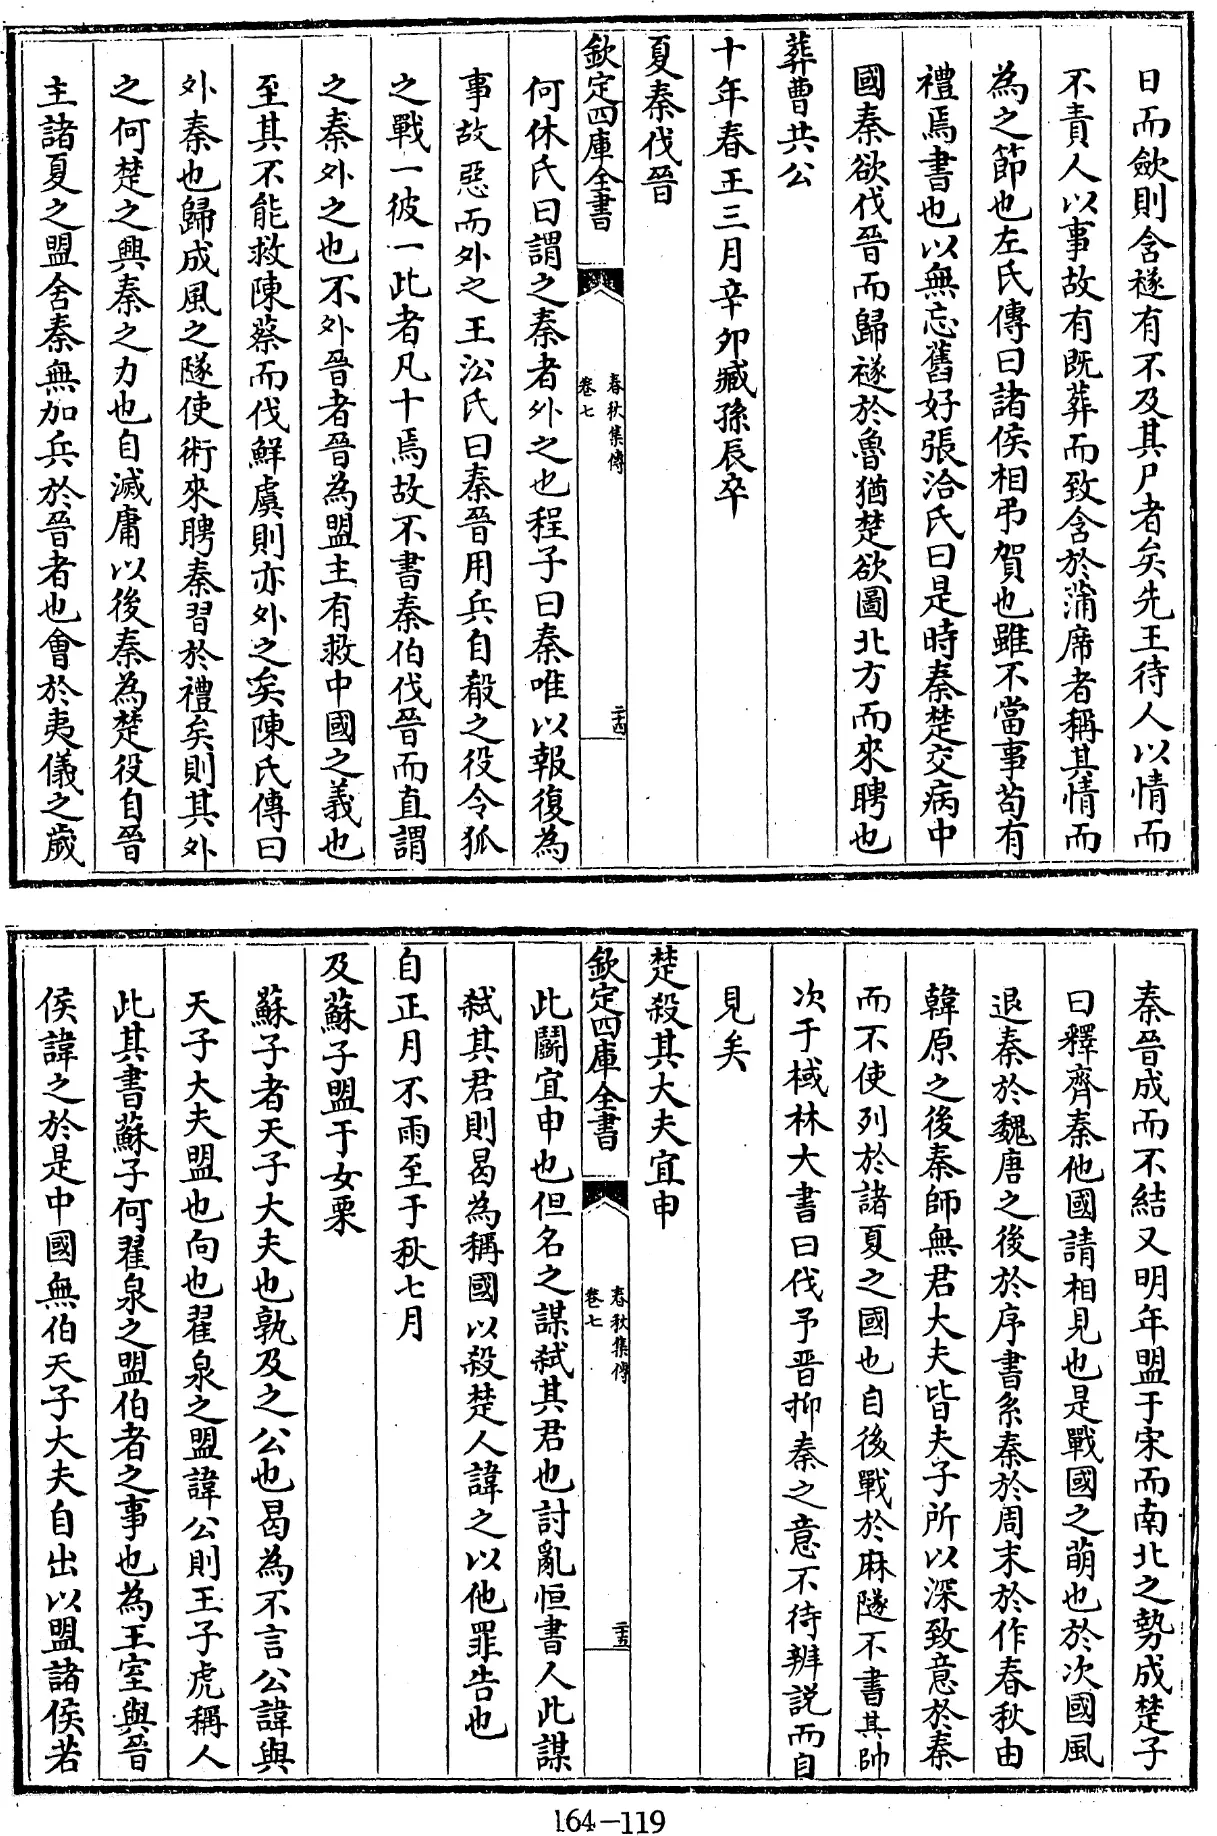 日而斂則含襚有不及其尸者矣先王待人以情而
不責人以事故有既葬而致含於蒲席者稱其情而
為之節也左氏傳曰諸侯相弔賀也雖不當事苟有
禮焉書也以無忘舊好張洽氏曰是時秦楚交病中
國秦欲伐晉而歸襚於魯猶楚欲圖北方而來聘也
葬曹共公
十年春王三月辛卯臧孫辰卒
夏秦伐晉
欽定四庫全書
春秋集傳
卷七
二十四
何休氏曰謂之秦者外之也程子曰秦唯以報復為
事故惡而外之王沿氏曰秦晉用兵自殽之役令狐
之戰一彼一此者凡十焉故不書秦伯伐晉而直謂
之秦外之也不外晉者晉為盟主有救中國之義也
至其不能救陳蔡而伐鮮虞則亦外之矣陳氏傳曰
外秦也歸成風之隧使術來聘秦習於禮矣則其外
之何楚之興秦之力也自滅庸以後秦為楚役自晉
主諸夏之盟舍秦無加兵於晉者也會於夷儀之歲
秦晉成而不結又明年盟于宋而南北之勢成楚子
曰釋齊秦他國請相見也是戰國之萌也於次國風
退秦於魏唐之後於序書系秦於周末於作春秋由
韓原之後秦師無君大夫皆夫子所以深致意於秦
而不使列於諸夏之國也自後戰於麻隧不書其帥
次于棫林大書曰伐予晉抑秦之意不待辨說而自
見矣
楚殺其大夫宜申
欽定四庫全書
春秋集傳
卷七
二十五
此鬬宜申也但名之謀弒其君也討亂恒書人此謀
弒其君則曷為稱國以殺楚人諱之以他罪告也
自正月不雨至于秋七月
及蘇子盟于女栗
蘇子者天子大夫也孰及之公也曷為不言公諱與
天子大夫盟也向也翟泉之盟諱公則王子虎稱人
此其書蘇子何翟泉之盟伯者之事也為王室與晉
侯諱之於是中國無伯天子大夫自出以盟諸侯若
164-119